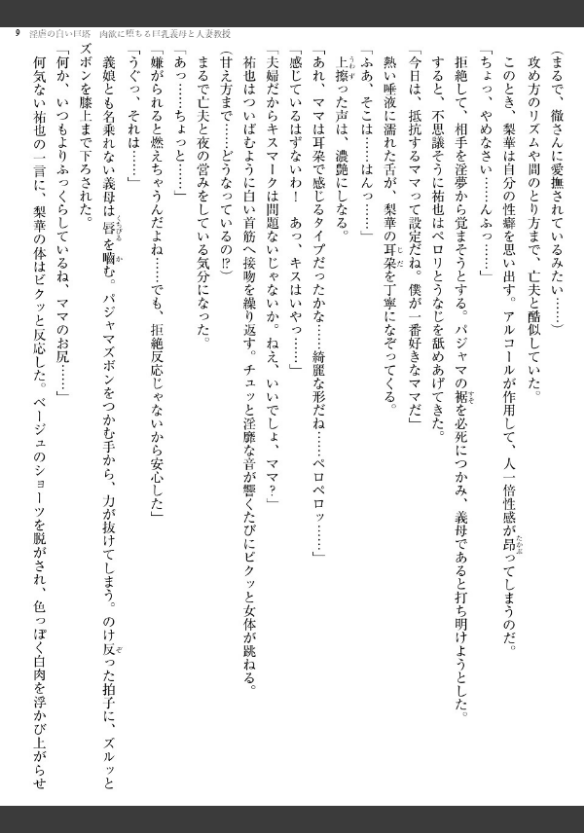 9 淫虐の白い巨塔 肉欲に堕ちる巨乳義母と人妻教授
(まるで、徹さんに愛撫されているみたい……)
攻め方のリズムや間のとり方まで、亡夫と酷似していた。
このとき、梨華は自分の性癖を思い出す。アルコールが作用して、人一倍性感が昂ってしまうのだ。
「ちょっ、やめなさい……んふっ……」
拒絶して、相手を淫夢から覚まそうとする。パジャマの裾を必死につかみ、義母であると打ち明けようとした。
すると、不思議そうに祐也はペロリとうなじを舐めあげてきた。
「今日は、抵抗するママって設定だね。僕が一番好きなママだ」
熱い唾液に濡れた舌が、梨華の耳朶を丁寧になぞってくる。
「ふあ、そこは……はんっ……」
上擦った声は、濃艶にしなる。
「あれ、ママは耳朶で感じるタイプだったかな……綺麗な形だね……ペロペロッ……」
「感じているはずないわ! あっ、キスはいやっ……」
「夫婦だからキスマークは問題ないじゃないか。ねえ、いいでしょ、ママ?」
祐也はついばむように白い首筋へ接吻を繰り返す。チュッと淫靡な音が響くたびにビクッと女体が跳ねる。
(甘え方まで……どうなっているの!?)
まるで亡夫と夜の営みをしている気分になった。
あっ……ちょっと……」
「嫌がられると燃えちゃうんだよね……でも、拒絶反応じゃないから安心した」
「うぐっ、それは……」
義娘とも名乗れない義母は唇を嚙む。パジャマズボンをつかむ手から、力が抜けてしまう。のけ反った拍子に、ズルッと
ズボンを膝上まで下ろされた。
「何か、いつもよりふっくらしているね、ママのお尻……」
何気ない祐也の一言に、梨華の体はビクッと反応した。ベージュのショーツを脱がされ、色っぽく白肉を浮かび上がらせ